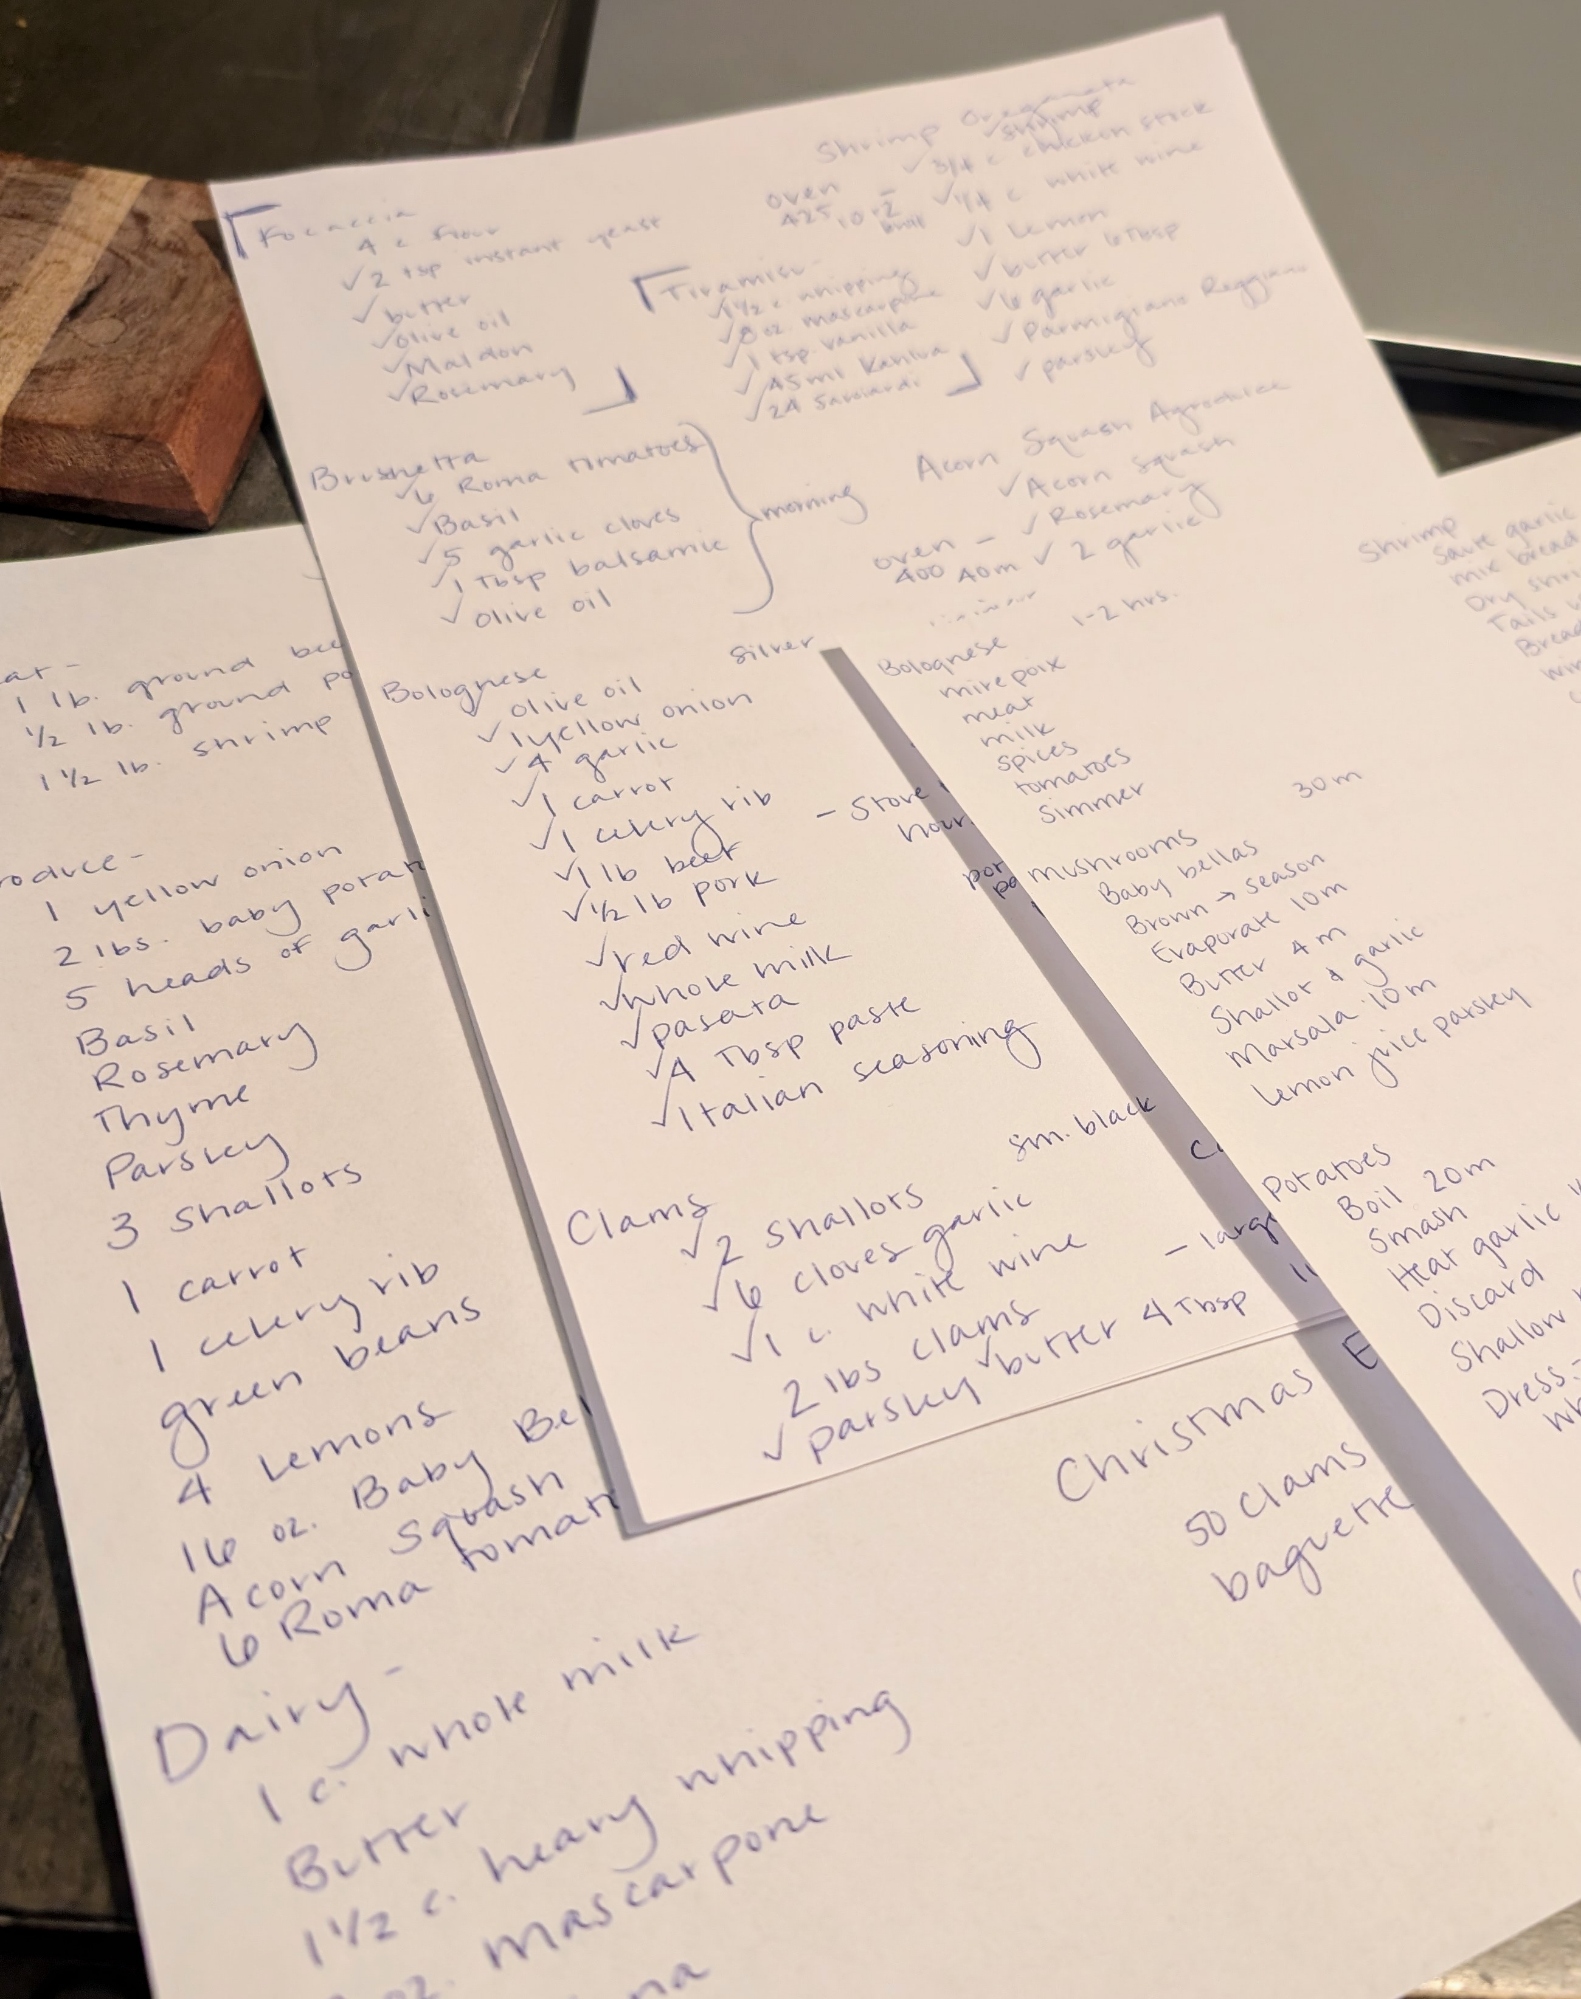 Focaccia
4 c flour
✓2 tsp instant yeast
✓butter
✓olive oil
✓Maldon
✓Rosemary
Brushetta
✓6 Roma tomatoes
✓Basil
✓5 garlic cloves
✓1 Tbsp balsamic
✓olive oil
morning
Bolognese
silver
✓olive oil
✓1 yellow onion
✓4 garlic
✓1 carrot
✓1 celery rib
✓1 lb beef
✓1/2 lb pork
✓red wine
✓whole milk
✓pasata
✓4 Tbsp paste
✓Italian seasoning
- Stove
hour
Clams
sm. black
✓2 shallots
✓6 cloves garlic
✓1 c. white wine
2 lbs clams
✓parsley ✓butter 4 Tbsp
- large
Shrimp Oreganata
✓shrimp
✓3/4 c chicken stock
✓1/4 c white wine
✓1 lemon
✓butter 6 Tbsp
✓6 garlic
✓Parmigiano Reggiano
✓parsley
oven
425 10-2
broil
Tiramisu
✓1 1/2 c whipping
✓8 oz mascarpone
✓1 tsp vanilla
✓45ml Kahlua
✓24 Savoiardi
Acorn Squash Agrodolce
✓Acorn squash
✓Rosemary
✓2 garlic
oven -
400 40m
1-2 hrs.
Bolognese
mirepoix
meat
milk
spices
tomatoes
simmer
30m
mushrooms
Baby bellas
Brown → season
Evaporate 10m
Butter 4m
Shallot & garlic
Marsala 10m
Lemon juice parsley
Potatoes
Boil 20m
Smash
Heat garlic
Discard
Shallow
Dress
Shrimp
Saute garlic
mix bread
Dry
Tails
Bread
1 lb. ground
1/2 lb. ground
1 1/2 lb. shrimp
1 yellow onion
2 lbs. baby
5 heads of
Basil
Rosemary
Thyme
Parsley
3 shallots
1 carrot
1 celery rib
green beans
4 Lemons
16 oz. Baby
Acorn Squash
6 Roma
Dairy -
1 c. whole milk
Butter
1 1/2 c. heavy whipping
oz. mascarpone
Christmas E
50 Clams
baguette